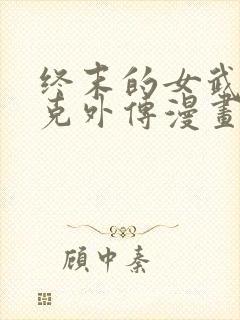 终末的女武
克外传漫畫
顾中秦